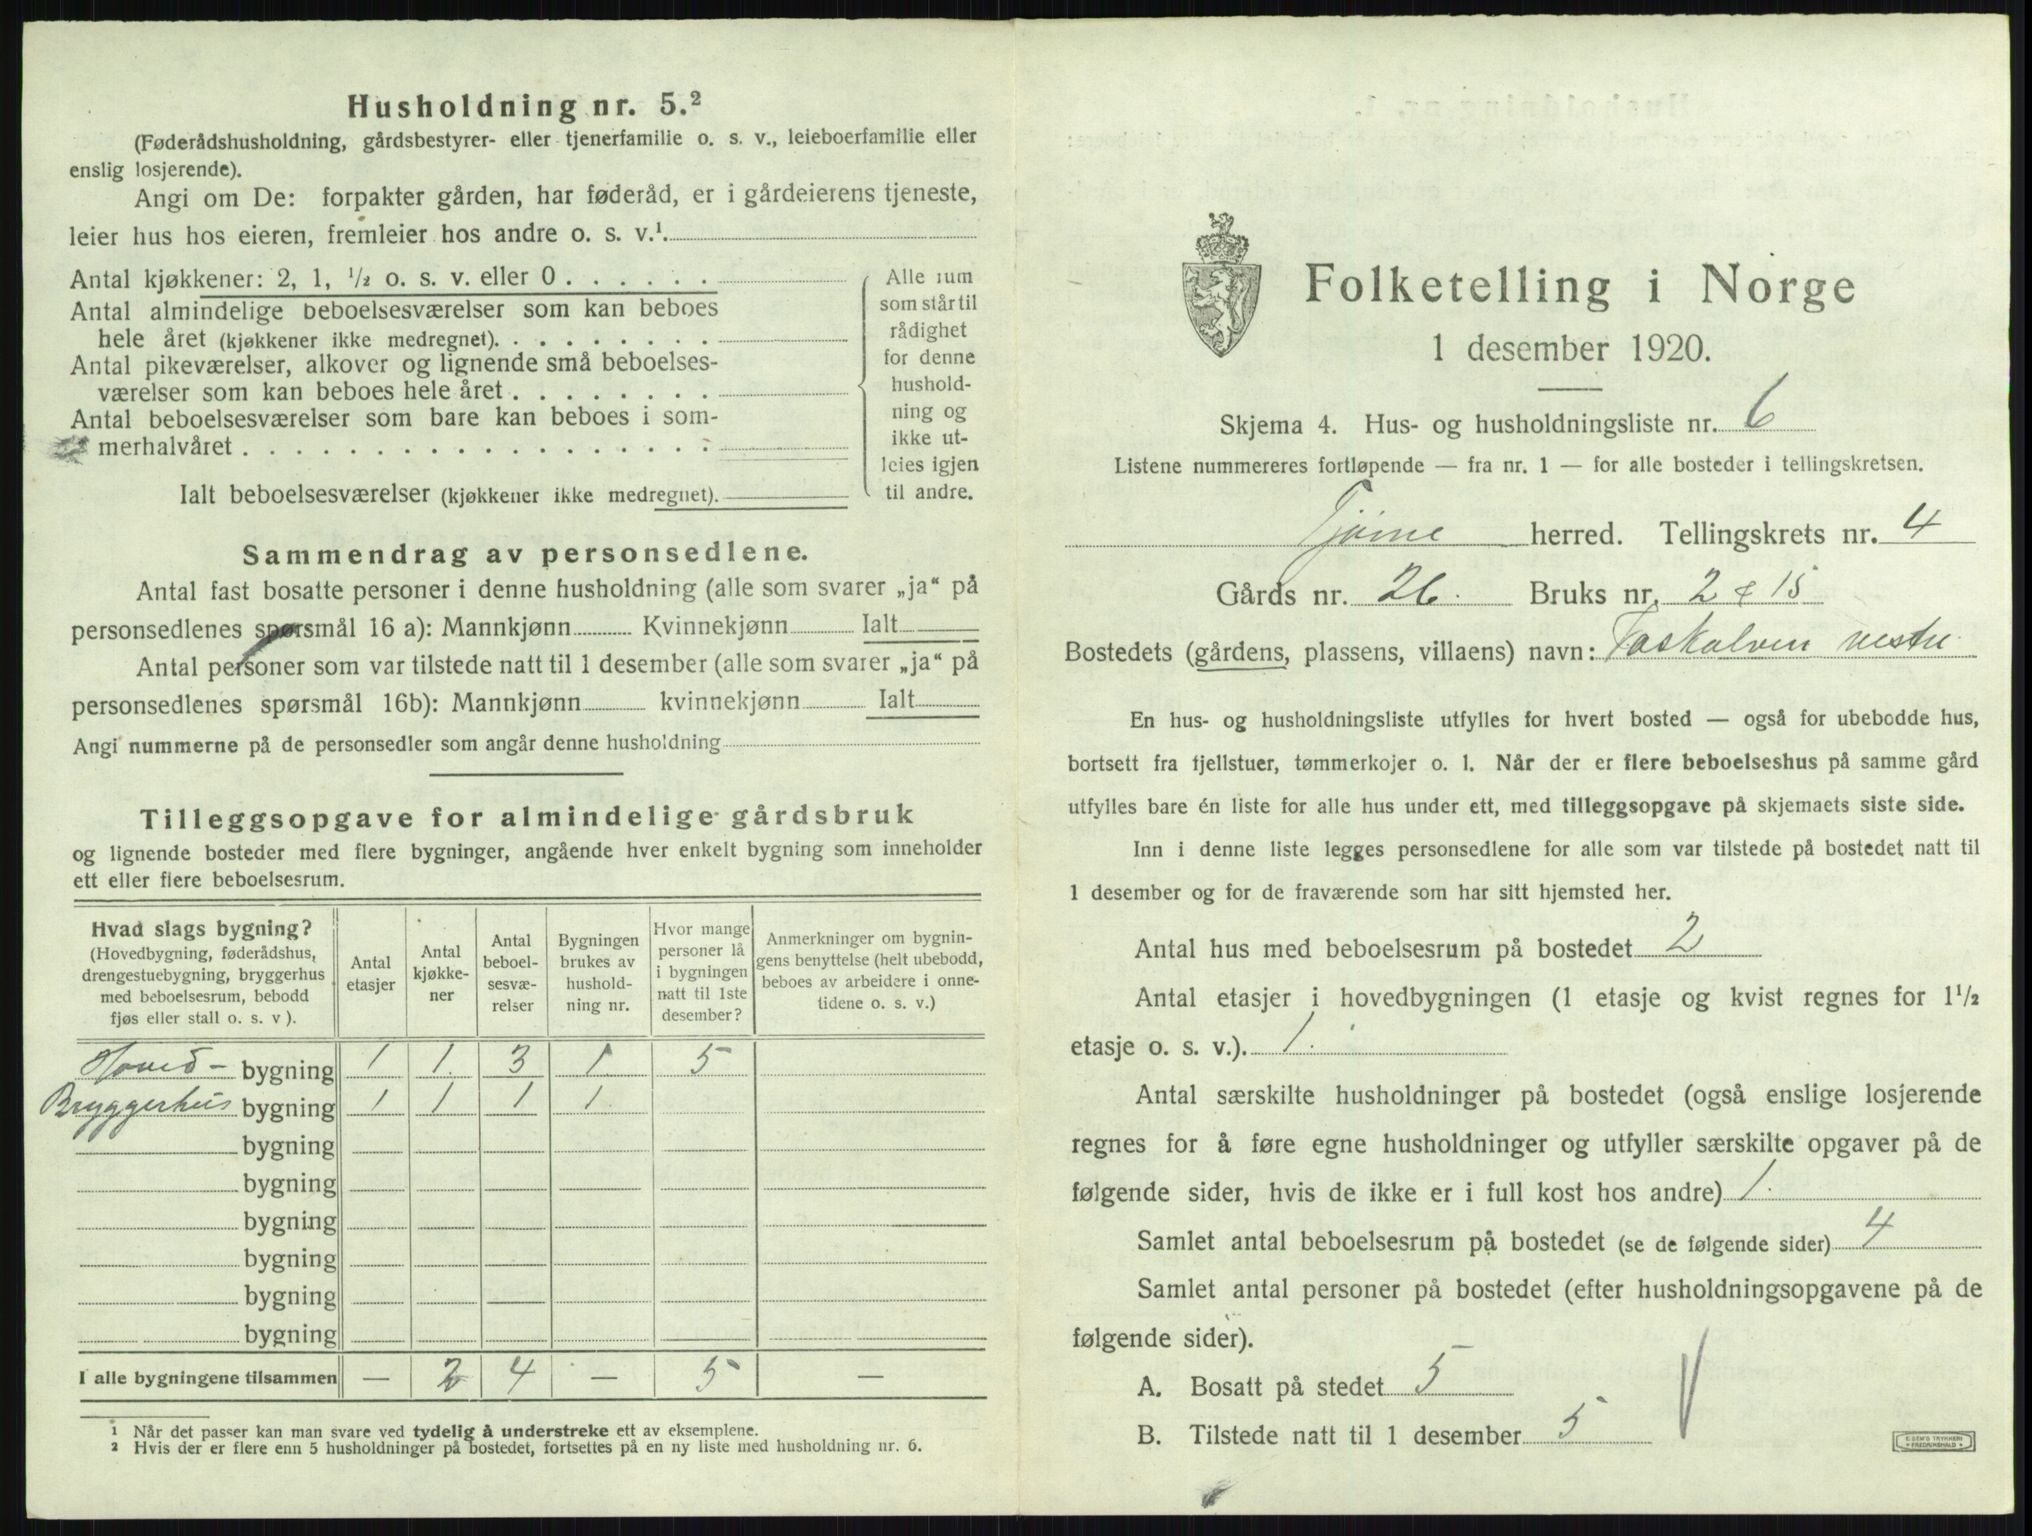 Husholdning nr. 5.²
(Føderådshusholdning, gårdsbestyrer- eller tjenerfamilie o. s. v., leieboerfamilie eller
enslig losjerende).
Angi om De: forpakter gården, har føderåd, er i gårdeierens tjeneste,
leier hus hos eieren, fremleier hos andre o. s. v.¹.
Antal kjøkkener: 2, 1, ½ o. s. v. eller 0 . . . . . .
Antal almindelige beboelsesværelser som kan beboes
hele året (kjøkkener ikke medregnet). . . . . . . . .
Antal pikeværelser, alkover og lignende små beboelses-
værelser som kan beboes hele året . . . . . . . .
Antal beboelsesværelser som bare kan beboes i som-
merhalvåret . . . . . . . . . . . . . . . . . .
Ialt beboelsesværelser (kjøkkener ikke medregnet).
Alle rum
som står til
rådighet
for denne
hushold-
ning og
ikke ut-
leies igjen
til andre.
Sammendrag av personsedlene.
Antal fast bosatte personer i denne husholdning (alle som svarer „ja“ på
personsedlenes spørsmål 16 a): Mannkjønn Kvinnekjønn Ialt
Antal personer som var tilstede natt til 1 desember (alle som svarer „ja“ på
personsedlenes spørsmål 16b): Mannkjønn kvinnekjønn Ialt
Angi nummerne på de personsedler som angår denne husholdning
Tilleggsopgave for almindelige gårdsbruk
og lignende bosteder med flere bygninger, angående hver enkelt bygning som inneholder
ett eller flere beboelsesrum.
Hvad slags bygning?
(Hovedbygning, føderådshus,
drengestuebygning, bryggerhus
med beboelsesrum, bebodd
fjøs eller stall o. s. v ).
Antal
etasjer
Antal
kjøkke-
ner
Antal
beboel-
sesvæ-
relser
Bygningen
brukes av
hushold-
ning nr.
Hvor mange
personer lå
i bygningen
natt til 1ste
desember?
Anmerkninger om bygnin-
gens benyttelse (helt ubebodd,
beboes av arbeidere i onne-
tidene o. s. v.)
Hoved- bygning 1 1. 3 1 5
Bryggerhus bygning 1 1 1 1
bygning
bygning
bygning
bygning
bygning
bygning
I alle bygningene tilsammen — 2 4 — 5 —
¹ Når det passer kan man svare ved tydelig å understreke ett av eksemplene.
² Hvis der er flere enn 5 husholdninger på bostedet, fortsettes på en ny liste med husholdning nr. 6.
Folketelling i Norge
1 desember 1920.
Skjema 4. Hus- og husholdningsliste nr. 6
Listene nummereres fortløpende — fra nr. 1 — for alle bosteder i tellingskretsen.
Tjøme herred. Tellingskrets nr. 4
Gårds nr. 26. Bruks nr. 2 & 15
Bostedets (gårdens, plassens, villaens) navn: Toskalven vestre
En hus- og husholdningsliste utfylles for hvert bosted — også for ubebodde hus,
bortsett fra fjellstuer, tømmerkojer o. l. Når der er flere beboelseshus på samme gård
utfylles bare én liste for alle hus under ett, med tilleggsopgave på skjemaets siste side.
Inn i denne liste legges personsedlene for alle som var tilstede på bostedet natt til
1 desember og for de fraværende som har sitt hjemsted her.
Antal hus med beboelsesrum på bostedet 2
Antal etasjer i hovedbygningen (1 etasje og kvist regnes for 1½
etasje o. s. v.). 1.
Antal særskilte husholdninger på bostedet (også enslige losjerende
regnes for å føre egne husholdninger og utfyller særskilte opgaver på de
følgende sider, hvis de ikke er i full kost hos andre) 1.
Samlet antal beboelsesrum på bostedet (se de følgende sider) 4
Samlet antal personer på bostedet (efter husholdningsopgavene på de
følgende sider).
A. Bosatt på stedet 5
B. Tilstede natt til 1 desember 5
E. SEM'S TRYKKERI
FREDRIKSHALD